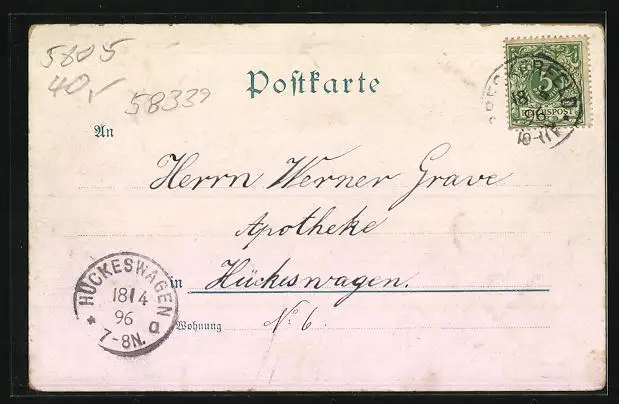 5805
40,-
58339
Postkarte
5
REICHSPOST
18
96
10-11
An
Herrn Werner Grave
Apotheke
in Hückeswagen.
Wohnung No. 6.
HÜCKESWAGEN
18/4
96
7-8N.
* a